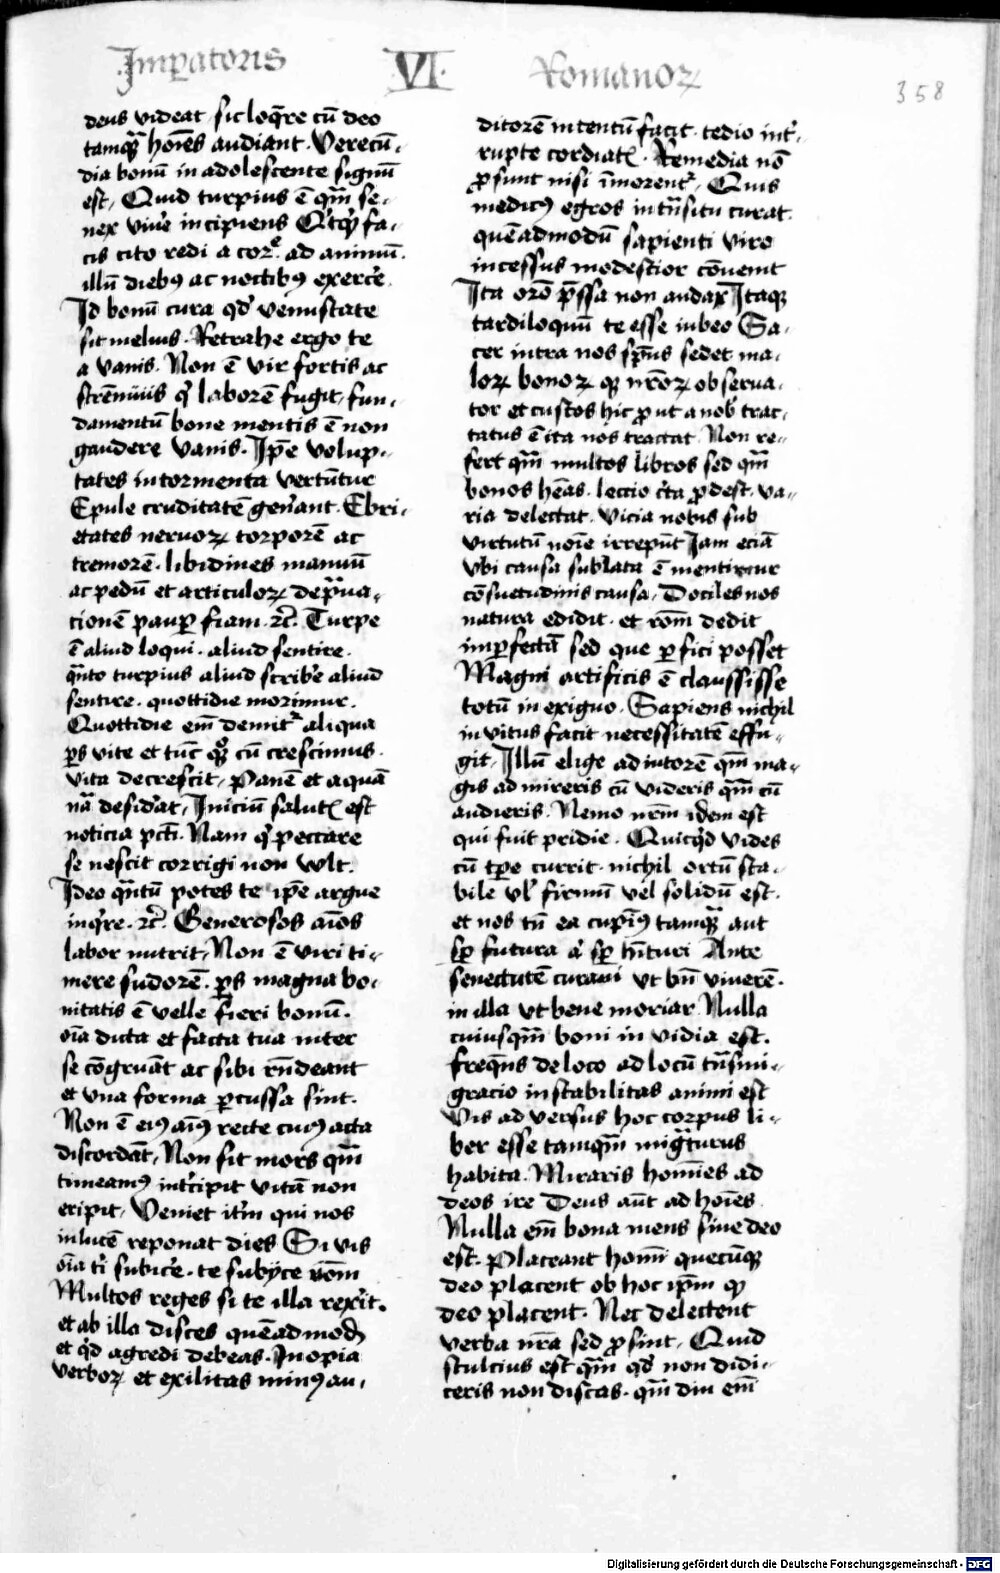 Imp̄atoris VI Romanoꝝ
358
deus videat sic loq̄re cū deo
tamq̄ʒ hoīes audiant. Verecū-
dia bonū in adolescente signū
est, Quid turpius ē qm̄ se-
nex viue᷑ incipiens Q᷑cqʒ fa-
cis cito redi a corꝫe ad animū.
illū diebꝰ ac noctibꝰ exerce᷑
Id bonū cura qd᷑ venustate
fit melius. Retrahe ergo te
a vanis. Non ē vir fortis ac
strēnuus q᷑ laborē fugit, fun-
damentū bone mentis ē non
gaudere vanis. Ip̄e volup-
tates in tormenta vertūtur
Epule cruditatē gen᷑ant. Ebri-
etates neruoꝝ torporē ac
tremorē. libidines manuū
ac pedū et articuloꝝ dep̄ua-
cionē paup̄ fiam. ⁊c̄. Turpe
ē aliud loqui. aliud sentire.
q̄nto turpius aliud scribe᷑ aliud
sentire. quottidie morimur.
Quottidie em̄ demit᷑ aliqua
ps̄ vite et tūc qꝫ cū crescimus
vita decrescit, Panē et aquā
nā desid᷑at, Iniciū salutꝭ est
noticia pctī. Nam q᷑ peccare
se nescit corrigi non wlt.
Ideo q̄ntū potes te ip̄e argue
inq᷑re. ⁊c̄. Generosos aīos
labor nutrit, Non ē viri ti-
mere sudorē. ps̄ magna bo-
nitatis ē velle fieri bonū.
oīa dicta et facta tua inter
se cōgruāt ac sibi rn̄deant
et vna forma p̱cussa sint.
Non ē eiꝰ aīꝰ recte cuiꝰ acta
discordāt, Non sit mors qm̄
timeamꝰ int᷑cipit vitā non
eripit, Veniet it᷑m qui nos
in lucē reponat dies Si vis
oīa t᷑i subice᷑. te subijce rōm̄
Multos reges si te illa rex᷑it.
et ab illa disces quēadmod̄
et q᷑d agredi debeas. Inopia
verboꝝ et exilitas minꝰ au-
ditorē intentū facit. tedio int᷑-
rupte cordiatꝭ. Remedia nō
ꝓsunt nisi īmorent᷑, Quis
medicꝰ egros in trn̄situ curat
quēadmodū sapienti viro
incessus modestior cōuenit
Ita orō p̄ssa non audax Itaqʒ
tardiloquū te esse iubeo Sa-
cer intra nos sp̄us sedet ma-
loꝝ bonoꝝ qʒ nr̄oꝝ obserua-
tor et custos hic ꝓut a nob᷑ trac-
tatus ē ita nos tractat. Non re-
fert qm̄ multos libros sed qm̄
bonos hēas. leccio c᷑ta ꝓdest. va-
ria delectat. Vicia nobis sub
virtutū noīe irrepūt Iam eciā
vbi causa sublata ē mentiretur
cōsuetudinis causa, Dociles nos
natura edidit. et rōm̄ dedit
imp̱fectā sed que p̱fici posset
Magni artificis ē claussisse
totū in exiguo. Sapiens nichil
in vitus facit necessitatē effu-
git, Illū elige adiutorē qm̄ ma-
gis admireris cū videris qm̄ cū
audieris. Nemo nrm̄ idem est
qui fuit pridie. Quicq᷑d vides
cū tp̄e currit. nichil ortū sta-
bile vl᷑ firmū vel solidū est.
et nos tn̄ ea cupīꝰ tamq̄ʒ aut
sp̱ futura a᷑ sp̱ hīturi Ante
senectutē curaui vt bn̄ viuerē.
in illa vt bene moriar. Nulla
cuiusqm̄ boni in vidia est.
freq̄ns de loco ad locū trn̄smi-
gracio instabilitas animi est
Vis ad versus hoc corpus li-
ber esse tamqm̄ mig̃turus
habita. Miraris homīes ad
deos ire Deus aūt ad hoīes
Nulla em̄ bona mens sine deo
est. Placeant homī quecūqʒ
deo placent ob hoc ip̄m qʒ
deo placent. Nec delectent
verba nr̄a sed ꝓsint, Quid
stulcius est qm̄ qd᷑ non didi-
ceris non discas. qm̄ diu em̄
Digitalisierung gefördert durch die Deutsche Forschungsgemeinschaft - DFG